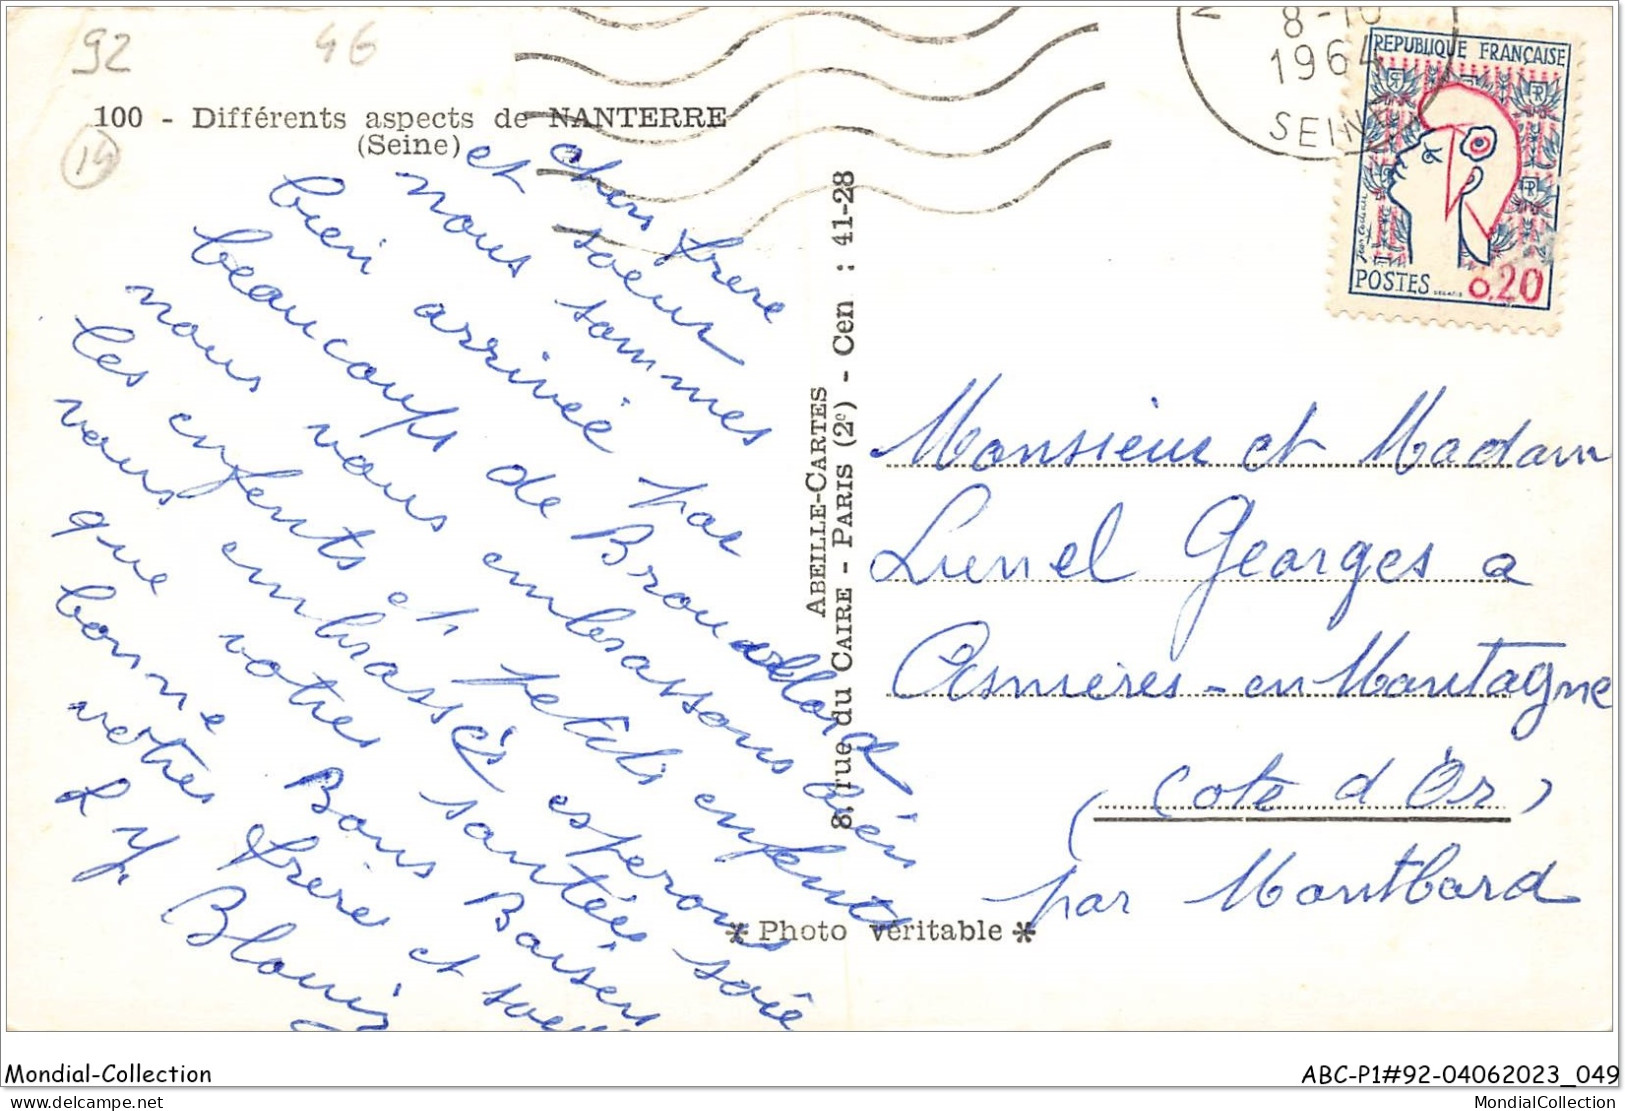 92
46
100 - Différents aspects de NANTERRE
(Seine)
14
chers frere
et soeur
nous sommes
bien arriveé par
beaucoups de Brouillard
nous vous embrassons bien
les enfents et petits enfents
vous embrassés esperons
que votres santées soie
bonne Bons Baisers
votres frére et soeu
L y. Blouin
ABEILLE-CARTES
8, rue du CAIRE - PARIS (2e) - Cen : 41-28
* Photo véritable *
8-10
1964
SEINE
REPUBLIQUE FRANÇAISE
POSTES
0,20
Monsieur et Madam
Lunel Georges a
Asnieres-en Montagne
(Cote d'Or)
par Montbard
Mondial-Collection
ABC-P1#92-04062023_049
delcampe.net
MondialCollection